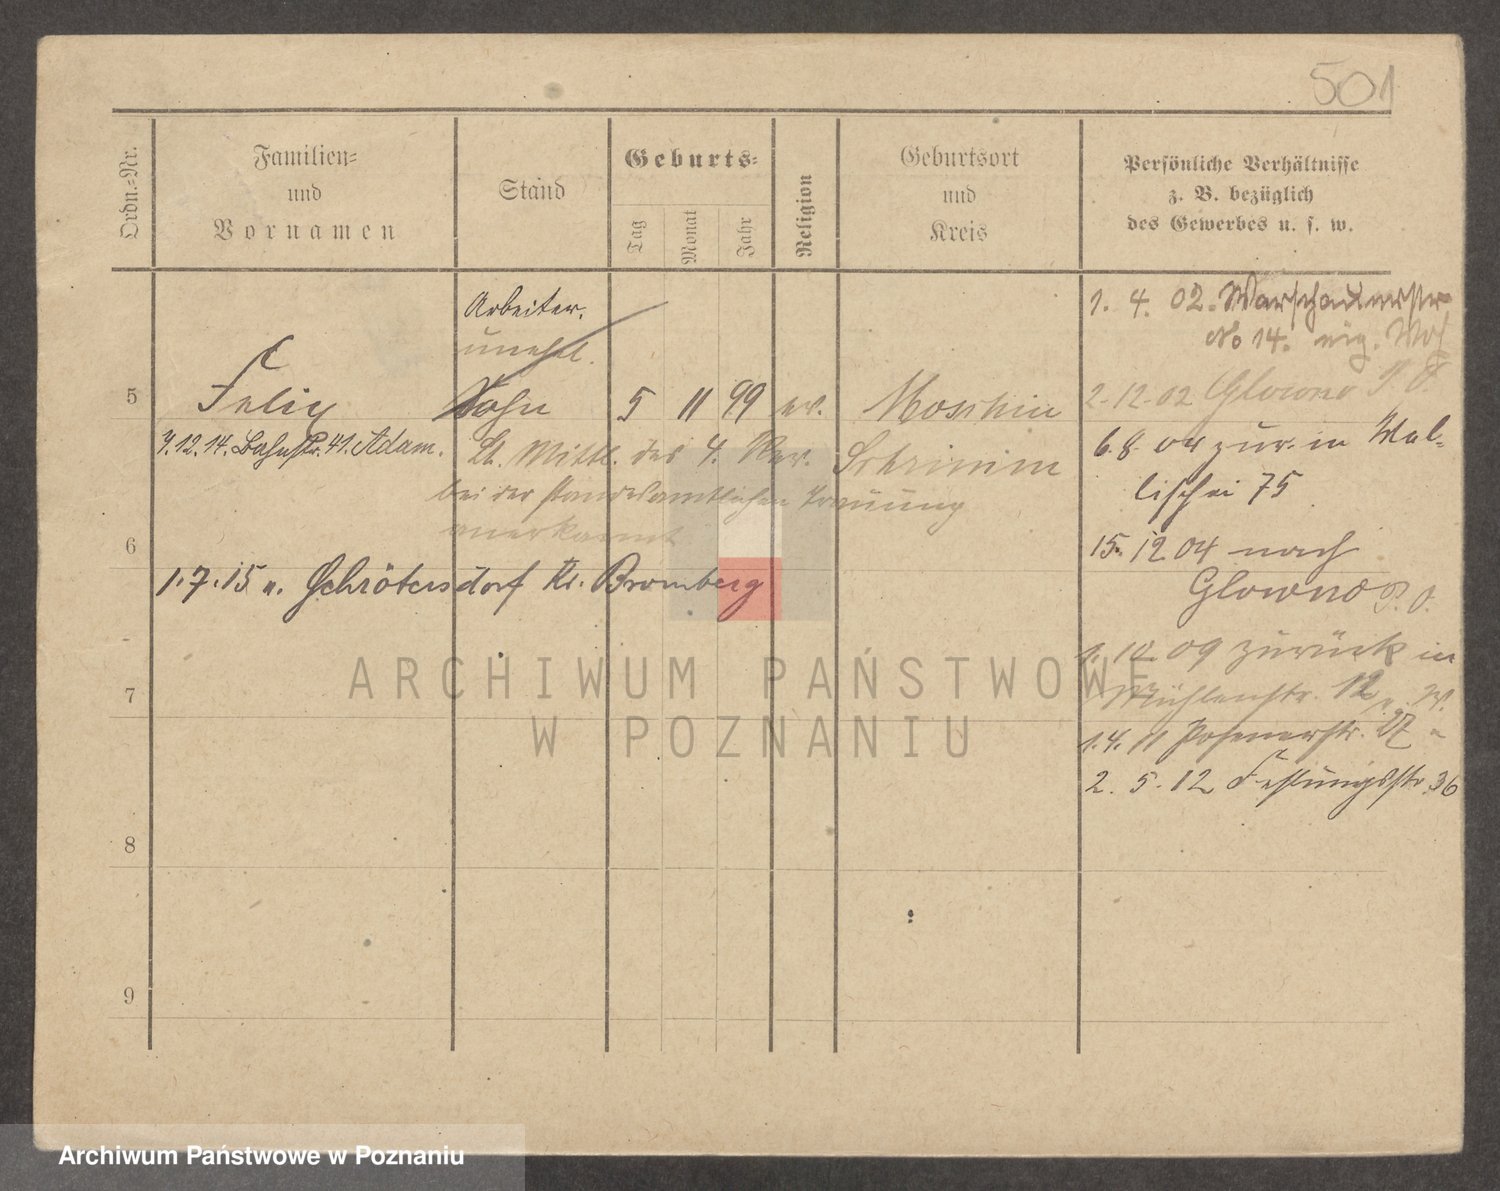 501
Ordn.=Nr.
Familien=
und
Vornamen
Stand
Geburts=
Tag
Monat
Jahr
Religion
Geburtsort
und
Kreis
Persönliche Verhältnisse
z. B. bezüglich
des Gewerbes u. s. w.
Arbeiter.
unehel.
5
Felix
Sohn
5 11 99 ev.
Moschin
Schrimm
7.12.14. Bahnstr. 41. Adam.
Lt. Mittl. des 4. Rev.
bei der standesamtlichen Trauung
anerkannt
6
1.7.15 n. Schrötersdorf Kr. Bromberg
1. 4. 02. Warschauerstr
No 14. eig. Wohg
2.12.02 Glowno
6.8.04 zur. in Wal-
lischei 75
15.12 04 nach
Glowno P. O.
1.10 09 zurück in
Mühlenstr. 12
1.4.11 Posenerstr. 27
2. 5. 12 Festungsstr. 36
7
8
9
ARCHIWUM PAŃSTWOWE
W POZNANIU
Archiwum Państwowe w Poznaniu